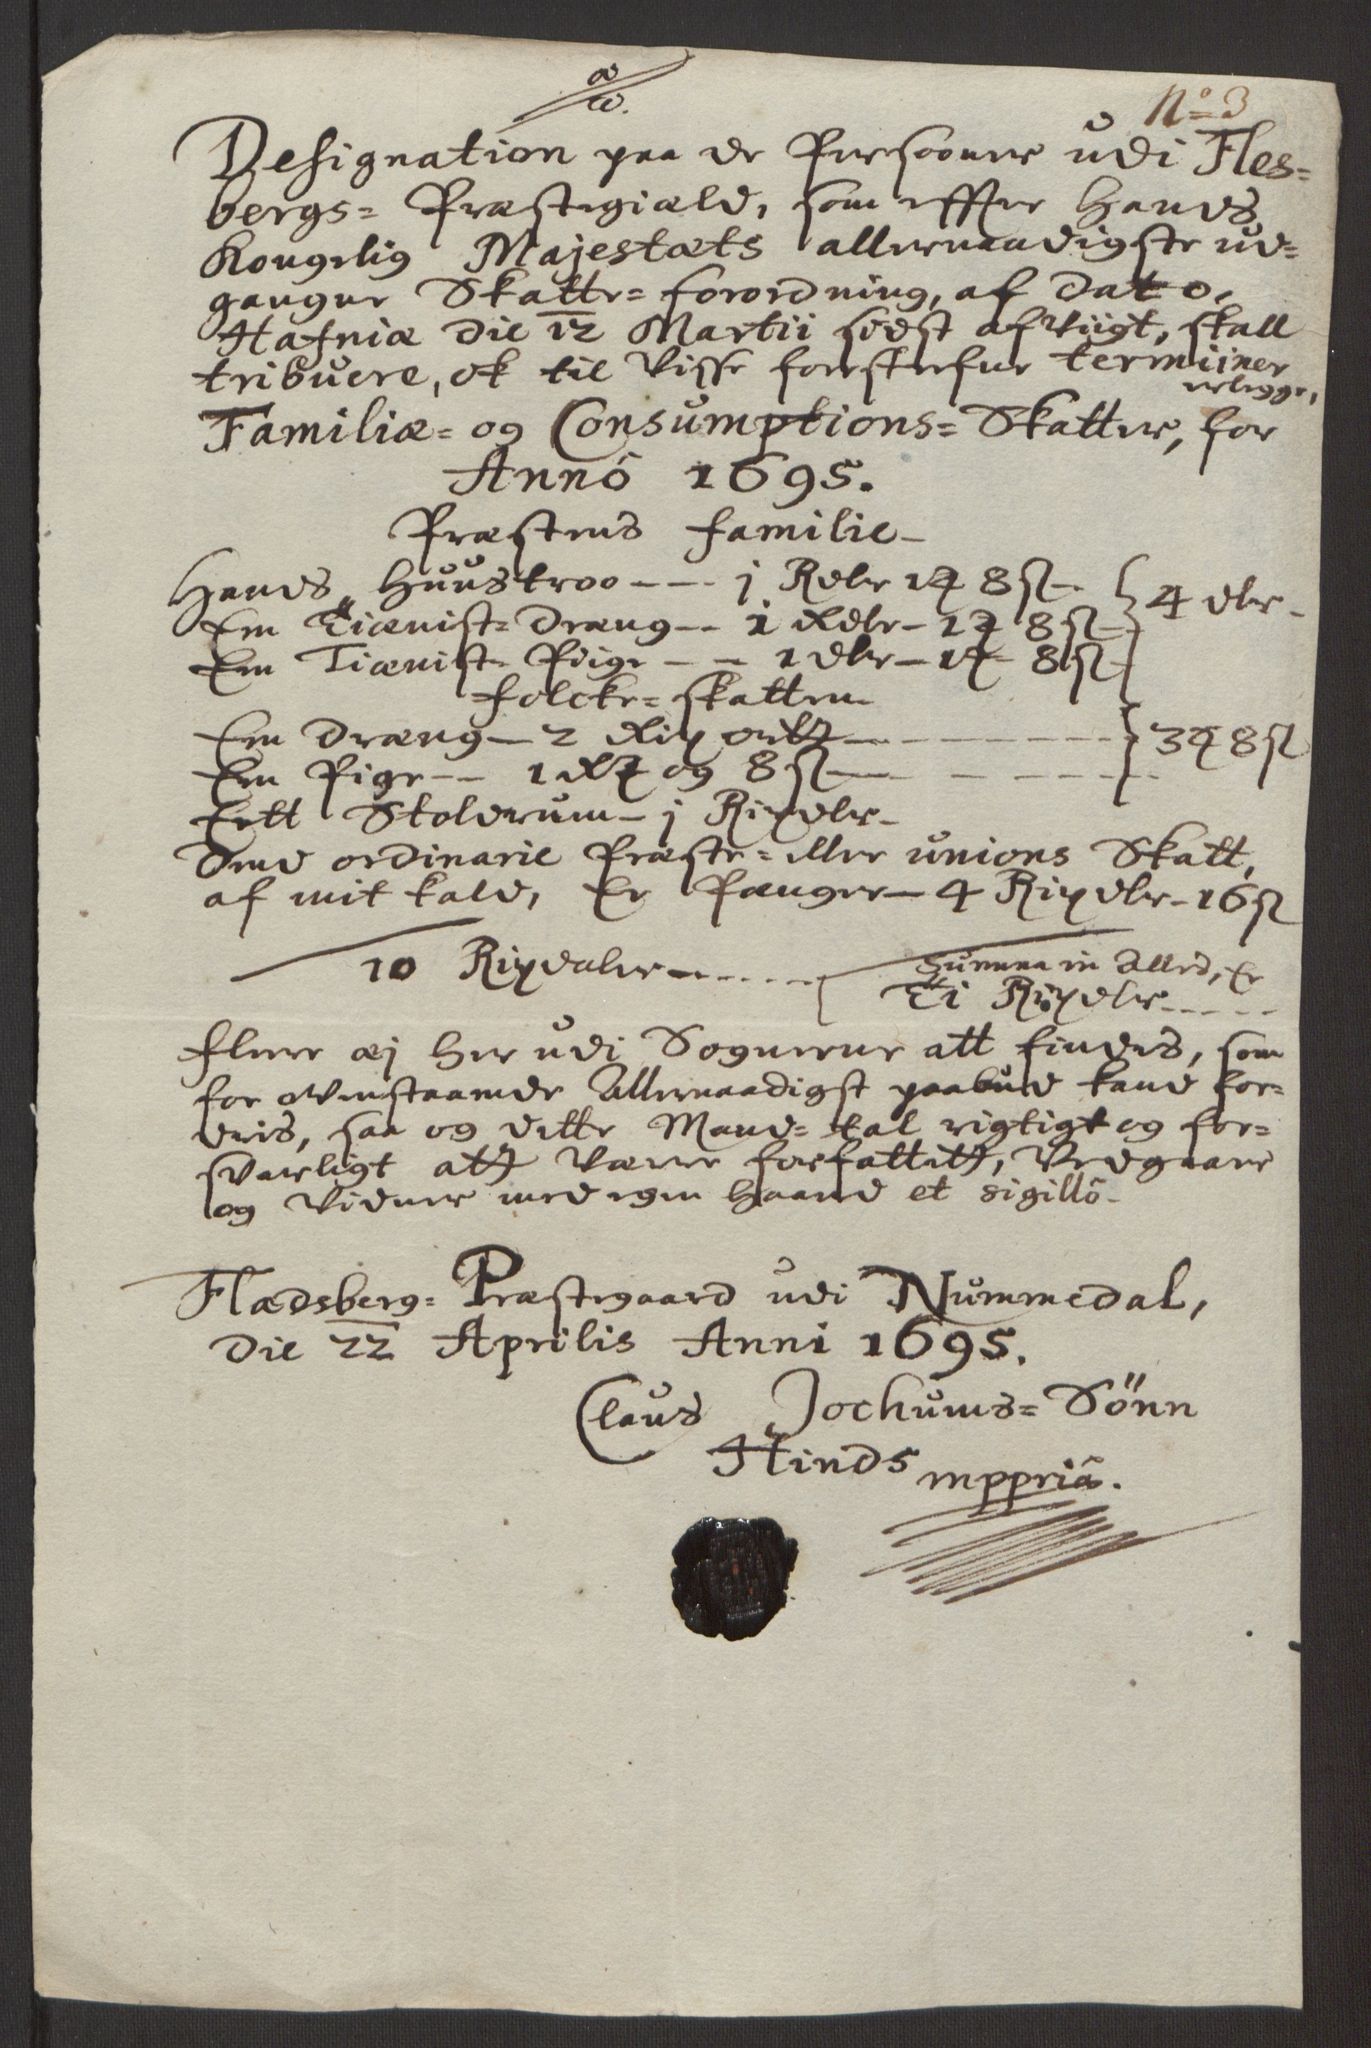 α
ω.
No 3
Designation paa de Persooner udi Fles=
bergs= Præstegiæld, som effter Hands
Kongelig Majestæts allernaadigste ud=
gangne Skatte= forordning, af Dato,
Hafniæ die 12 Martii sidst afvigt, skall
tribuere, ok til visse forestefne terminer
erlegge,
Familiæ= og Consumptions= Skatter, for
Anno 1695.
Præstens familie
Hands Huustroo --- j Rdlr 1 8 sz
Een Tiænist= Dræng -- 1 Rdlr - 1 8 sz
Een Tiænist Piige -- 1 dlr - 1 8 sz
4 dlr
folcke= skatten
Een Dræng - 2 Rix ortt
Een Pige -- 1 og 8 sz
3 8 sz
Eett Stolerum - j Rixdlr
Dend ordinarie Præste= eller unions Skatt,
af mit kald, Er Penger - 4 Rixdlr - 16 sz
10 Rixdaler
Summa in Alled, Er
Ti Rixdlr
Fleere æj her udi Sognerne att findes, som
for ovenstaaende Allernaadigst paabud kand for=
dris, saa og dette Mand= tal rigtigt og for=
svarligt att være forfattett, Vedgaare
og Vidner med egen Haand et sigillo
Flædsberg= Præstegaard udi Nummedal,
Die 22 Aprilis Anni 1695.
Claus Jochums= Sönn
Hinds mppriâ.